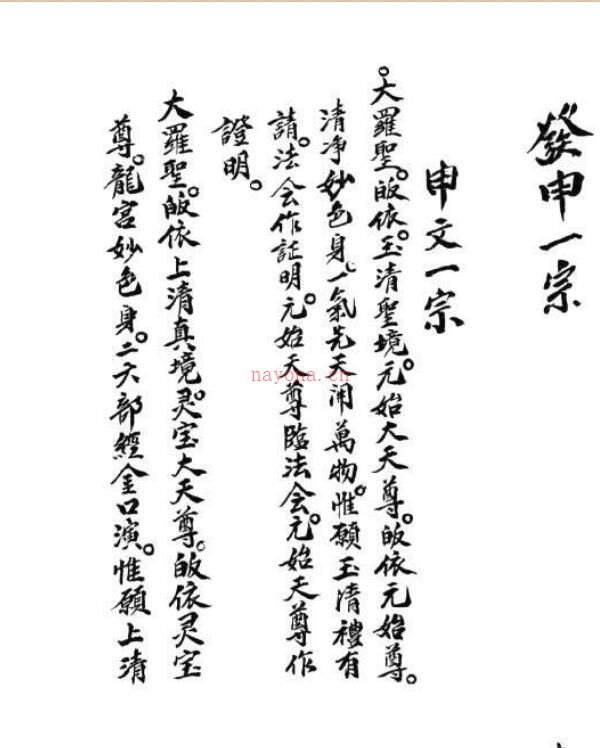 發申一宗
申文一宗
大羅聖。皈依。玉清聖境。元始大天尊。皈依元始尊。
清净妙色身。一氣先天開萬物。惟願玉清禮有
請。法会作証明。元始天尊臨法会。元始天尊作
證明。
大羅聖。皈依上清真境。灵宝大天尊。皈依灵宝
尊。龍宫妙色身。二六部經金口演。惟願上清
nayona.cn